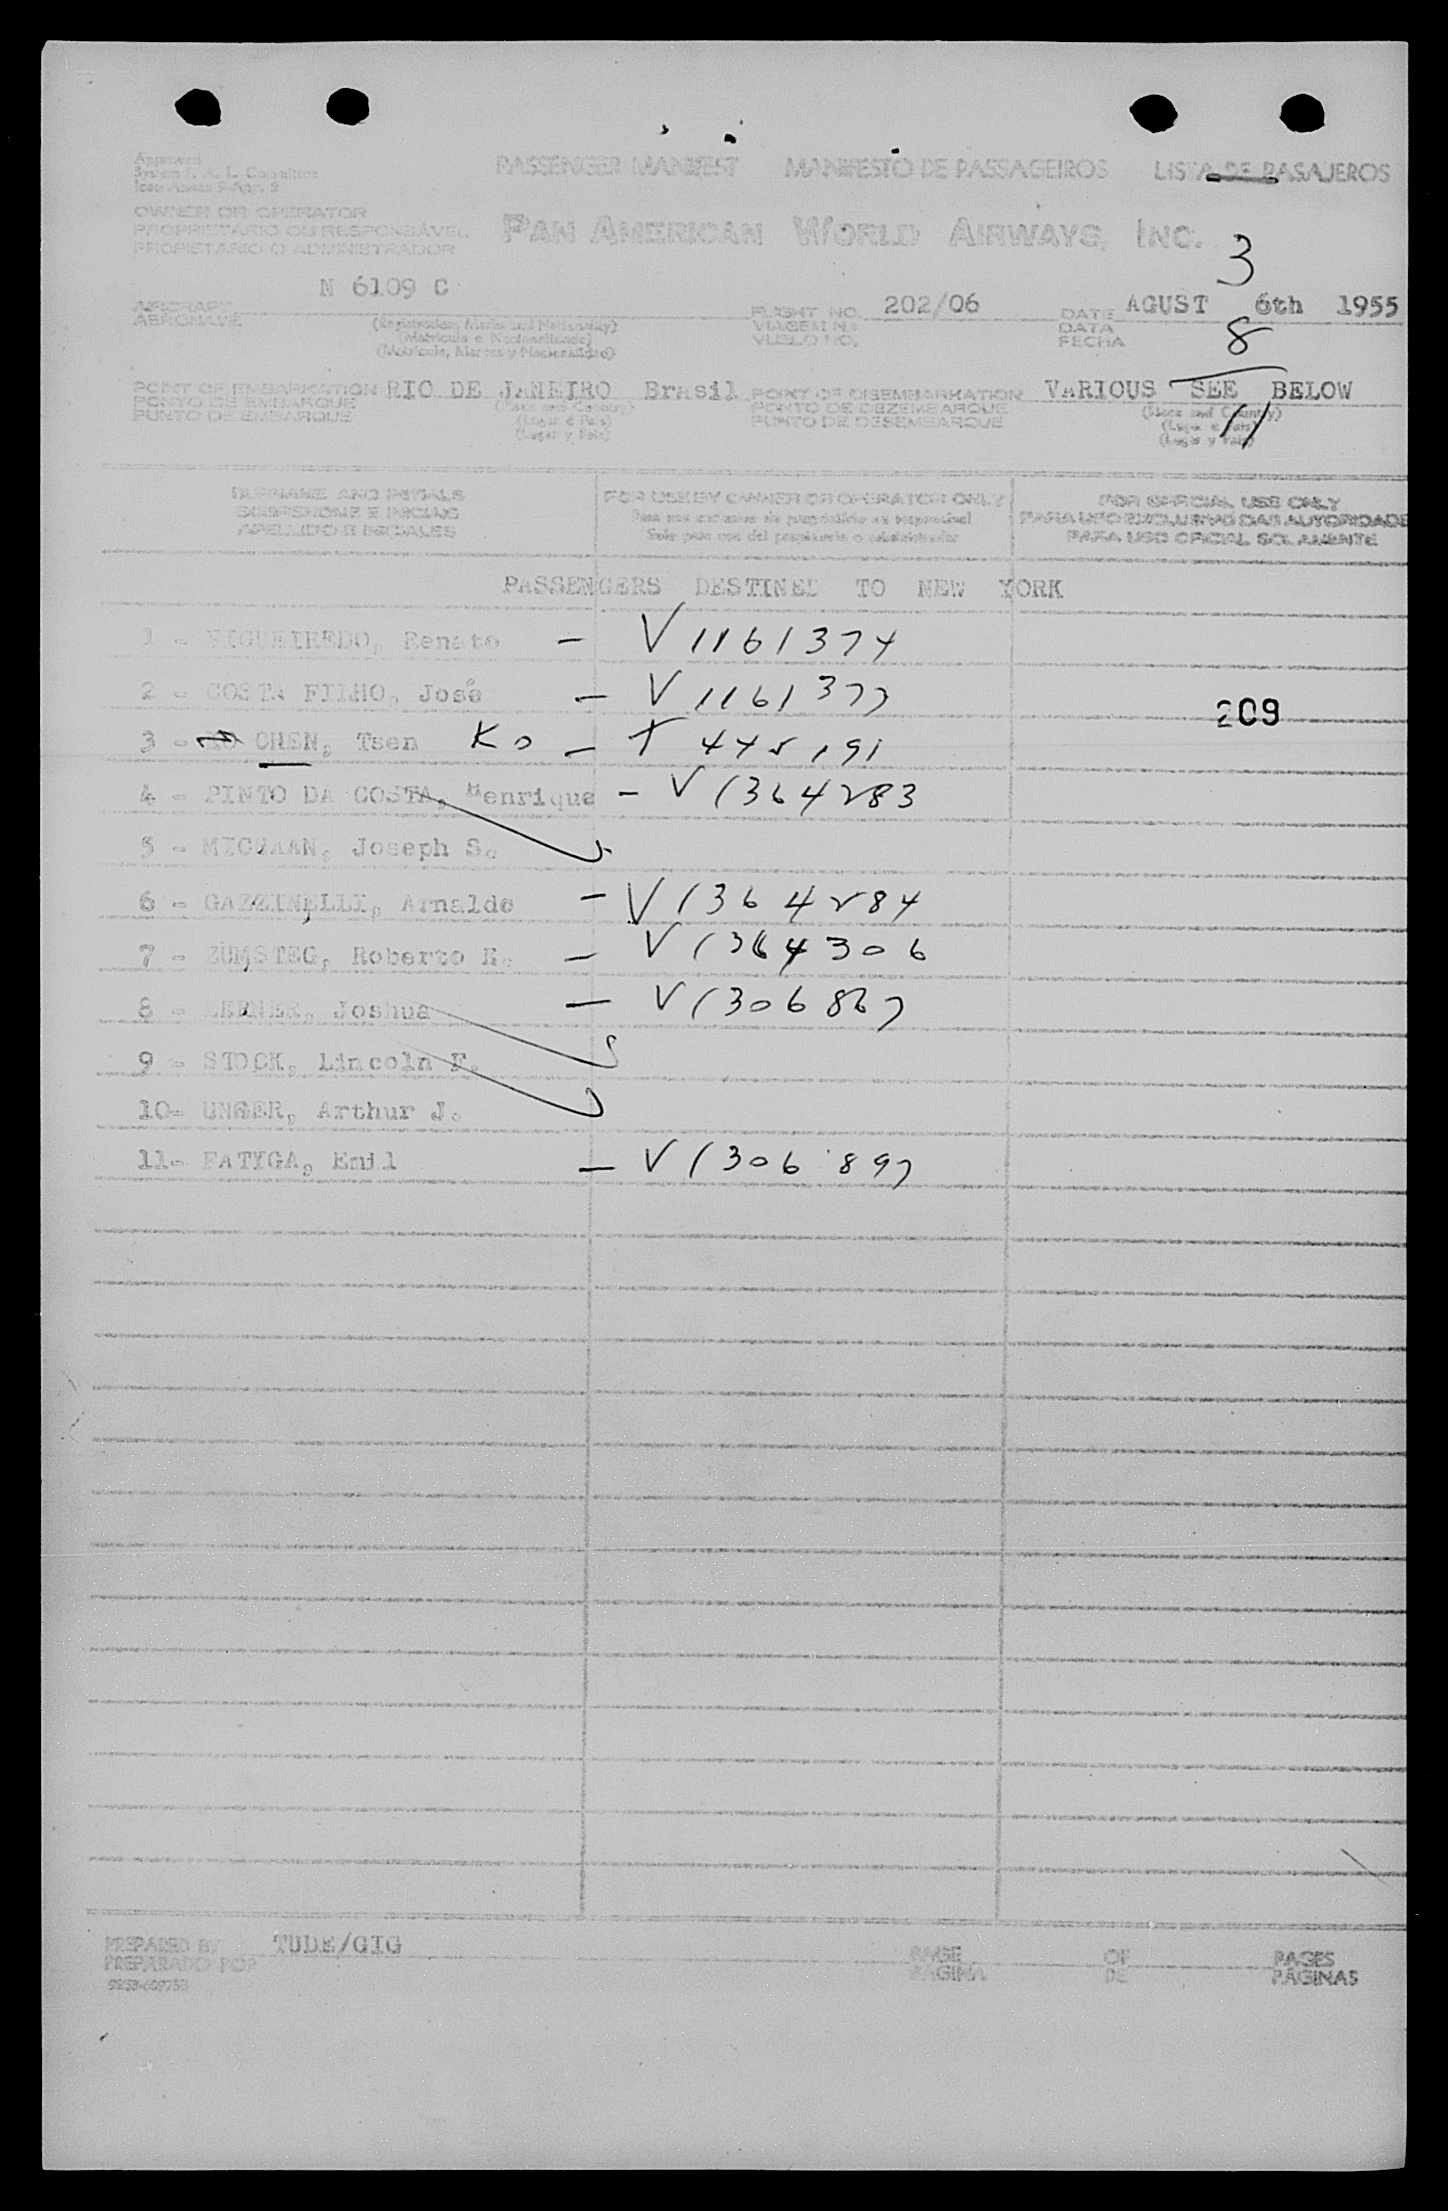 Approved
PASSENGER MANIFEST MANIFESTO DE PASSAGEIROS LISTA DE PASAJEROS
OWNER OR OPERATOR
PROPRIETARIO OU RESPONSÁVEL
PROPIETARIO O ADMINISTRADOR
PAN AMERICAN WORLD AIRWAYS, INC.
3
AIRCRAFT N 6109 C FLIGHT NO. 202/06 DATE AGUST 6th 1955
AERONAVE VIAGEM N.o DATA
VUELO NO. FECHA
(Registration, Marks and Nationality)
(Matricula e Nacionalidade)
(Matricula, Marcas y Nacionalidad)
8
POINT OF EMBARKATION RIO DE JANEIRO Brasil POINT OF DISEMBARKATION VARIOUS SEE BELOW
PONTO DE EMBARQUE (Place and Country) PONTO DE DEZEMBARQUE (Place and Country)
PUNTO DE EMBARQUE (Lugar e Pais) PUNTO DE DESEMBARQUE (Lugar e Pais)
(Lugar y Pais) (Lugar y Pais)
11
SURNAME AND INITIALS FOR USE BY OWNER OR OPERATOR ONLY FOR OFFICIAL USE ONLY
SOBRENOME E INICIAIS Para uso exclusivo do proprietário ou responsável PARA USO EXCLUSIVO DAS AUTORIDADE
APELLIDO E INICIALES Solo para uso del propietario o administrador PARA USO OFICIAL SOLAMENTE
PASSENGERS DESTINED TO NEW YORK
1 - FIGUEIREDO, Renato - V1161374
2 - COSTA FILHO, José - V1161377
209
3 - KO CHEN, Tsen Ko - T 445191
4 - PINTO DA COSTA, Henrique - V1364283
5 - Joseph S.
6 - GAZZINELLI, Arnaldo - V1364284
7 - ZUMSTEG, Roberto E. - V1364306
8 - LERNER, Joshua - V1306867
9 - STOCK, Lincoln F.
10- UNGER, Arthur J.
11- FATYGA, Emil - V1306897
PREPARED BY TUDE/GIG PAGE OF PAGES
PREPARADO POR PAGINA DE PAGINAS